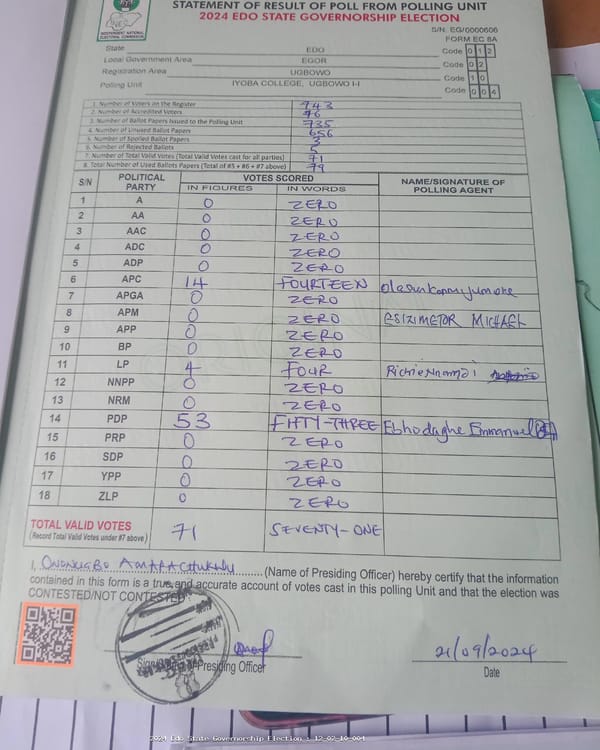 STATEMENT OF RESULT OF POLL FROM POLLING UNIT
2024 EDO STATE GOVERNORSHIP ELECTION
INDEPENDENT NATIONAL ELECTORAL COMMISSION
S/N. EG/0000606
FORM EC 8A
State EDO Code 0 1 2
Local Government Area EGOR Code 0 2
Registration Area UGBOWO Code 1 0
Polling Unit IYOBA COLLEGE, UGBOWO I-I Code 0 0 4
1. Number of Voters on the Register 743
2. Number of Accredited Voters 76
3. Number of Ballot Papers Issued to the Polling Unit 735
4. Number of Unused Ballot Papers 656
5. Number of Spoiled Ballot Papers 3
6. Number of Rejected Ballots 5
7. Number of Total Valid Votes (Total Valid Votes cast for all parties) 71
8. Total Number of Used Ballots Papers (Total of #5 + #6 + #7 above) 79
S/N POLITICAL PARTY VOTES SCORED NAME/SIGNATURE OF POLLING AGENT
IN FIGURES IN WORDS
1 A 0 ZERO
2 AA 0 ZERO
3 AAC 0 ZERO
4 ADC 0 ZERO
5 ADP 0 ZERO
6 APC 14 FOURTEEN
7 APGA 0 ZERO
8 APM 0 ZERO ESIZIMETOR MICHAEL
9 APP 0 ZERO
10 BP 0 ZERO
11 LP 4 FOUR Richie Nnamdi
12 NNPP 0 ZERO
13 NRM 0 ZERO
14 PDP 53 FIFTY-THREE Ebhodaghe Emmanuel
15 PRP 0 ZERO
16 SDP 0 ZERO
17 YPP 0 ZERO
18 ZLP 0 ZERO
TOTAL VALID VOTES 71 SEVENTY-ONE
(Record Total Valid Votes under #7 above)
I, (Name of Presiding Officer) hereby certify that the information
contained in this form is a true and accurate account of votes cast in this polling Unit and that the election was
CONTESTED/NOT CONTESTED
Presiding Officer
21/09/2024
Date
2024 Edo State Governorship Election : 12_02_10_004